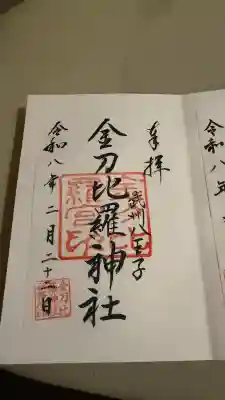 奉拝
武州八王子
金刀比羅神社
令和八年二月二十二日
令和八年